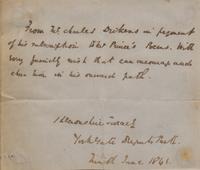 From Mr Charles Dickens in payment
of his subscription to Mr Prince's Poems. With
every friendly wish that can encourage and
cheer him in his onward path.
1 Devonshire Terrace
York Gate Regents Park.
Ninth June 1841.